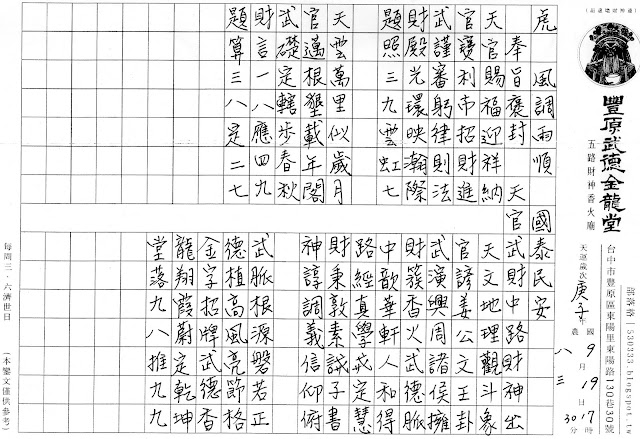 豐原武德金龍堂
五路財神香火廟
部落格 | 530333.blogspot.tw
台中市豐原區東陽里東陽路130巷30號
天運歲次庚子年 農 國
八 9月
三 19日
17時
30分
虎 風調雨順 國泰民安
奉旨褒封 天官武財中路財神 出
天官賜福迎祥納
官寶利市招財進
武謹審躬律則法
財殿光環映瀚際
題照三九雲虹七
天雲萬里似歲月
官邁根墾載年閣
武礎定轄步春秋
財言一八應四九
題算三八定二七
天文地理觀斗象
官諺姜公文王卦
武演興周諸侯擁
財發香火武德脈
中歆華軒人和得
路經真學戒定慧
財秉敦素誠子書
神諄調義信仰俯
武脈根源磐若正
德植高風亮節格
金字招牌武德香
龍翔霞蔚定乾坤
堂落九八推九九
每周三．六濟世日
（本鑾文僅供參考）